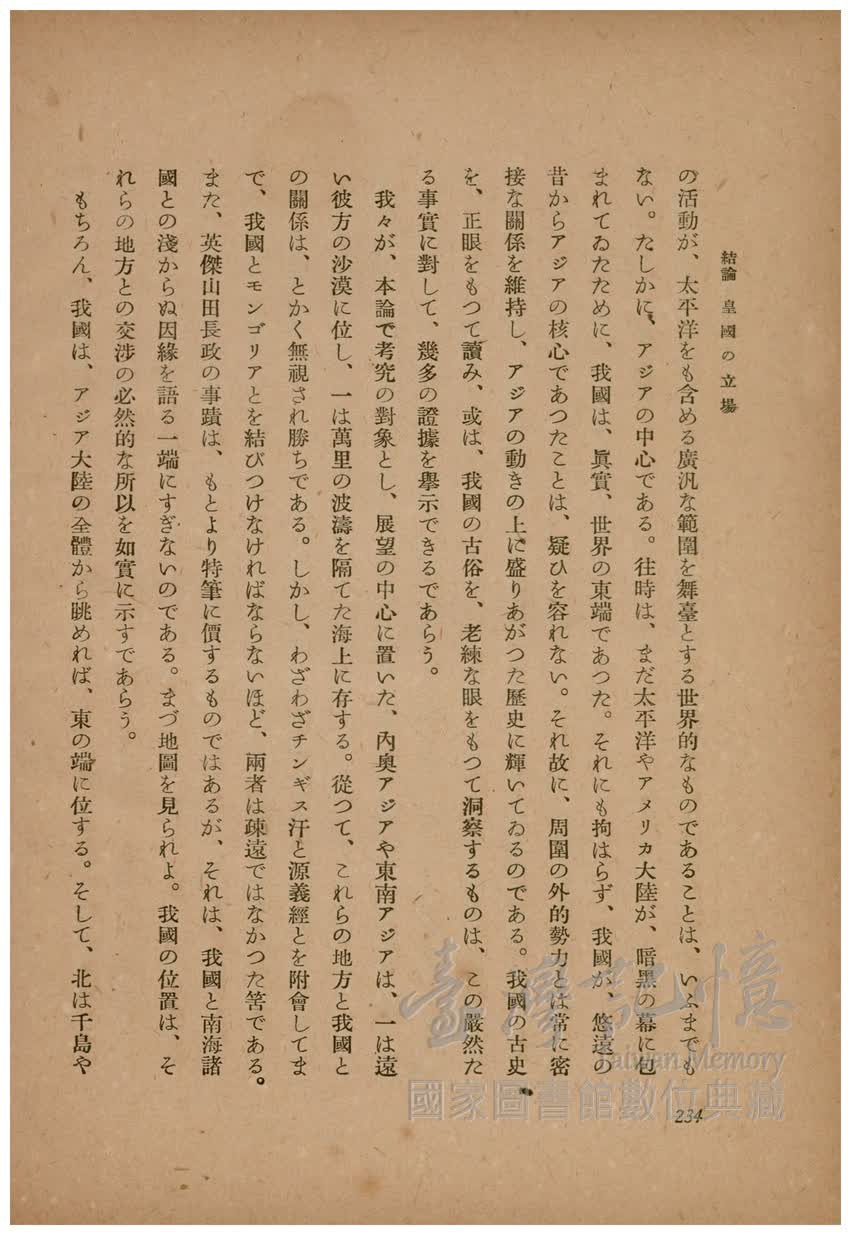 結論 皇國の立場
の活動が、太平洋をも含める廣汎な範圍を舞臺とする世界的なものであることは、いふまでも
ない。たしかに、アジアの中心である。往時は、まだ太平洋やアメリカ大陸が、暗黑の幕に包
まれてゐたために、我國は、眞實、世界の東端であつた。それにも拘はらず、我國が、悠遠の
昔からアジアの核心であつたことは、疑ひを容れない。それ故に、周圍の外的勢力とは常に密
接な關係を維持し、アジアの動きの上に盛りあがつた歷史に輝いてゐるのである。我國の古史
を、正眼をもつて讀み、或は、我國の古俗を、老練な眼をもつて洞察するものは、この嚴然た
る事實に對して、幾多の證據を擧示できるであらう。
我々が、本論で考究の對象とし、展望の中心に置いた、內奧アジアや東南アジアは、一は遠
い彼方の沙漠に位し、一は萬里の波濤を隔てた海上に存する。從つて、これらの地方と我國と
の關係は、とかく無視され勝ちである。しかし、わざわざチンギス汗と源義經とを附會してま
で、我國とモンゴリアとを結びつけなければならないほど、兩者は疎遠ではなかつた筈である。
また、英傑山田長政の事蹟は、もとより特筆に價するものではあるが、それは、我國と南海諸
國との淺からぬ因緣を語る一端にすぎないのである。まづ地圖を見られよ。我國の位置は、そ
れらの地方との交涉の必然的な所以を如實に示すであらう。
もちろん、我國は、アジア大陸の全體から眺めれば、東の端に位する。そして、北は千島や
234
臺灣記憶
Taiwan Memory
國家圖書館數位典藏